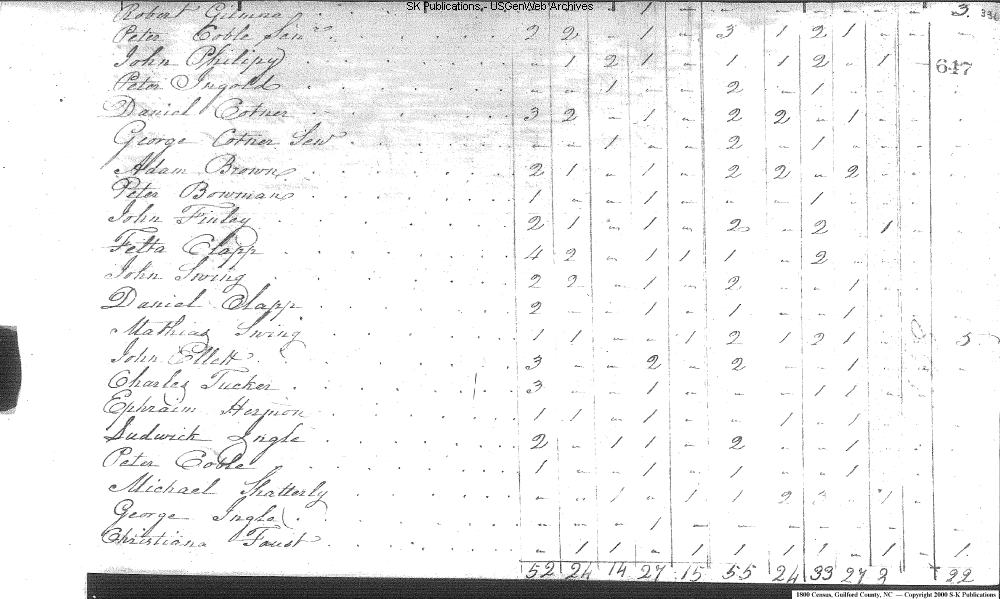 SK Publications - USGenWeb Archives
Robert Gilmore . . . 1 - - 3. 336
Peter Coble Senr. 2 2 - 1 - 3 1 2 1 - -
John Philipy - 1 2 1 - 1 1 2 - 1 - 647
Peter Ingold - - 1 - - 2 - 1 - -
Daniel Cotner 3 2 - 1 - 2 2 - 1 - -
George Cotner Sen - - 1 - - 2 - 1 - -
Adam Brown 2 1 - 1 - 2 2 - 2 - -
Peter Bowman 1 - - 1 - - - 1 - -
John Finley 2 1 - 1 - 2 - 2 - 1 -
Felta Clapp 4 2 - 1 1 1 - 2 - -
John Swing 2 2 - 1 - 2 - - 1 -
Daniel Clapp 2 - - 1 - 1 - - 1 -
Mathias Swing 1 1 - - 1 2 1 2 1 - 5
John Ellett 3 - - 2 - 2 - - 1 -
Charles Tucker 3 - - 1 - - - 1 1 -
Ephraim Hermon 1 1 - 1 - - 1 - 1 -
Ludwick Ingle 2 - 1 1 - 2 - - 1 -
Peter Coble 1 - - 1 - 1 - - 1 -
Michael Shatterly - - 1 - 1 1 2 - 1 -
George Ingle - - - 1 - - - - - -
Christiana Faust - 1 1 - 1 1 1 1 - 1 - 1.
52 24 14 27 15 55 24 33 27 2 22
1800 Census, Guilford County, NC — Copyright 2000 S-K Publications